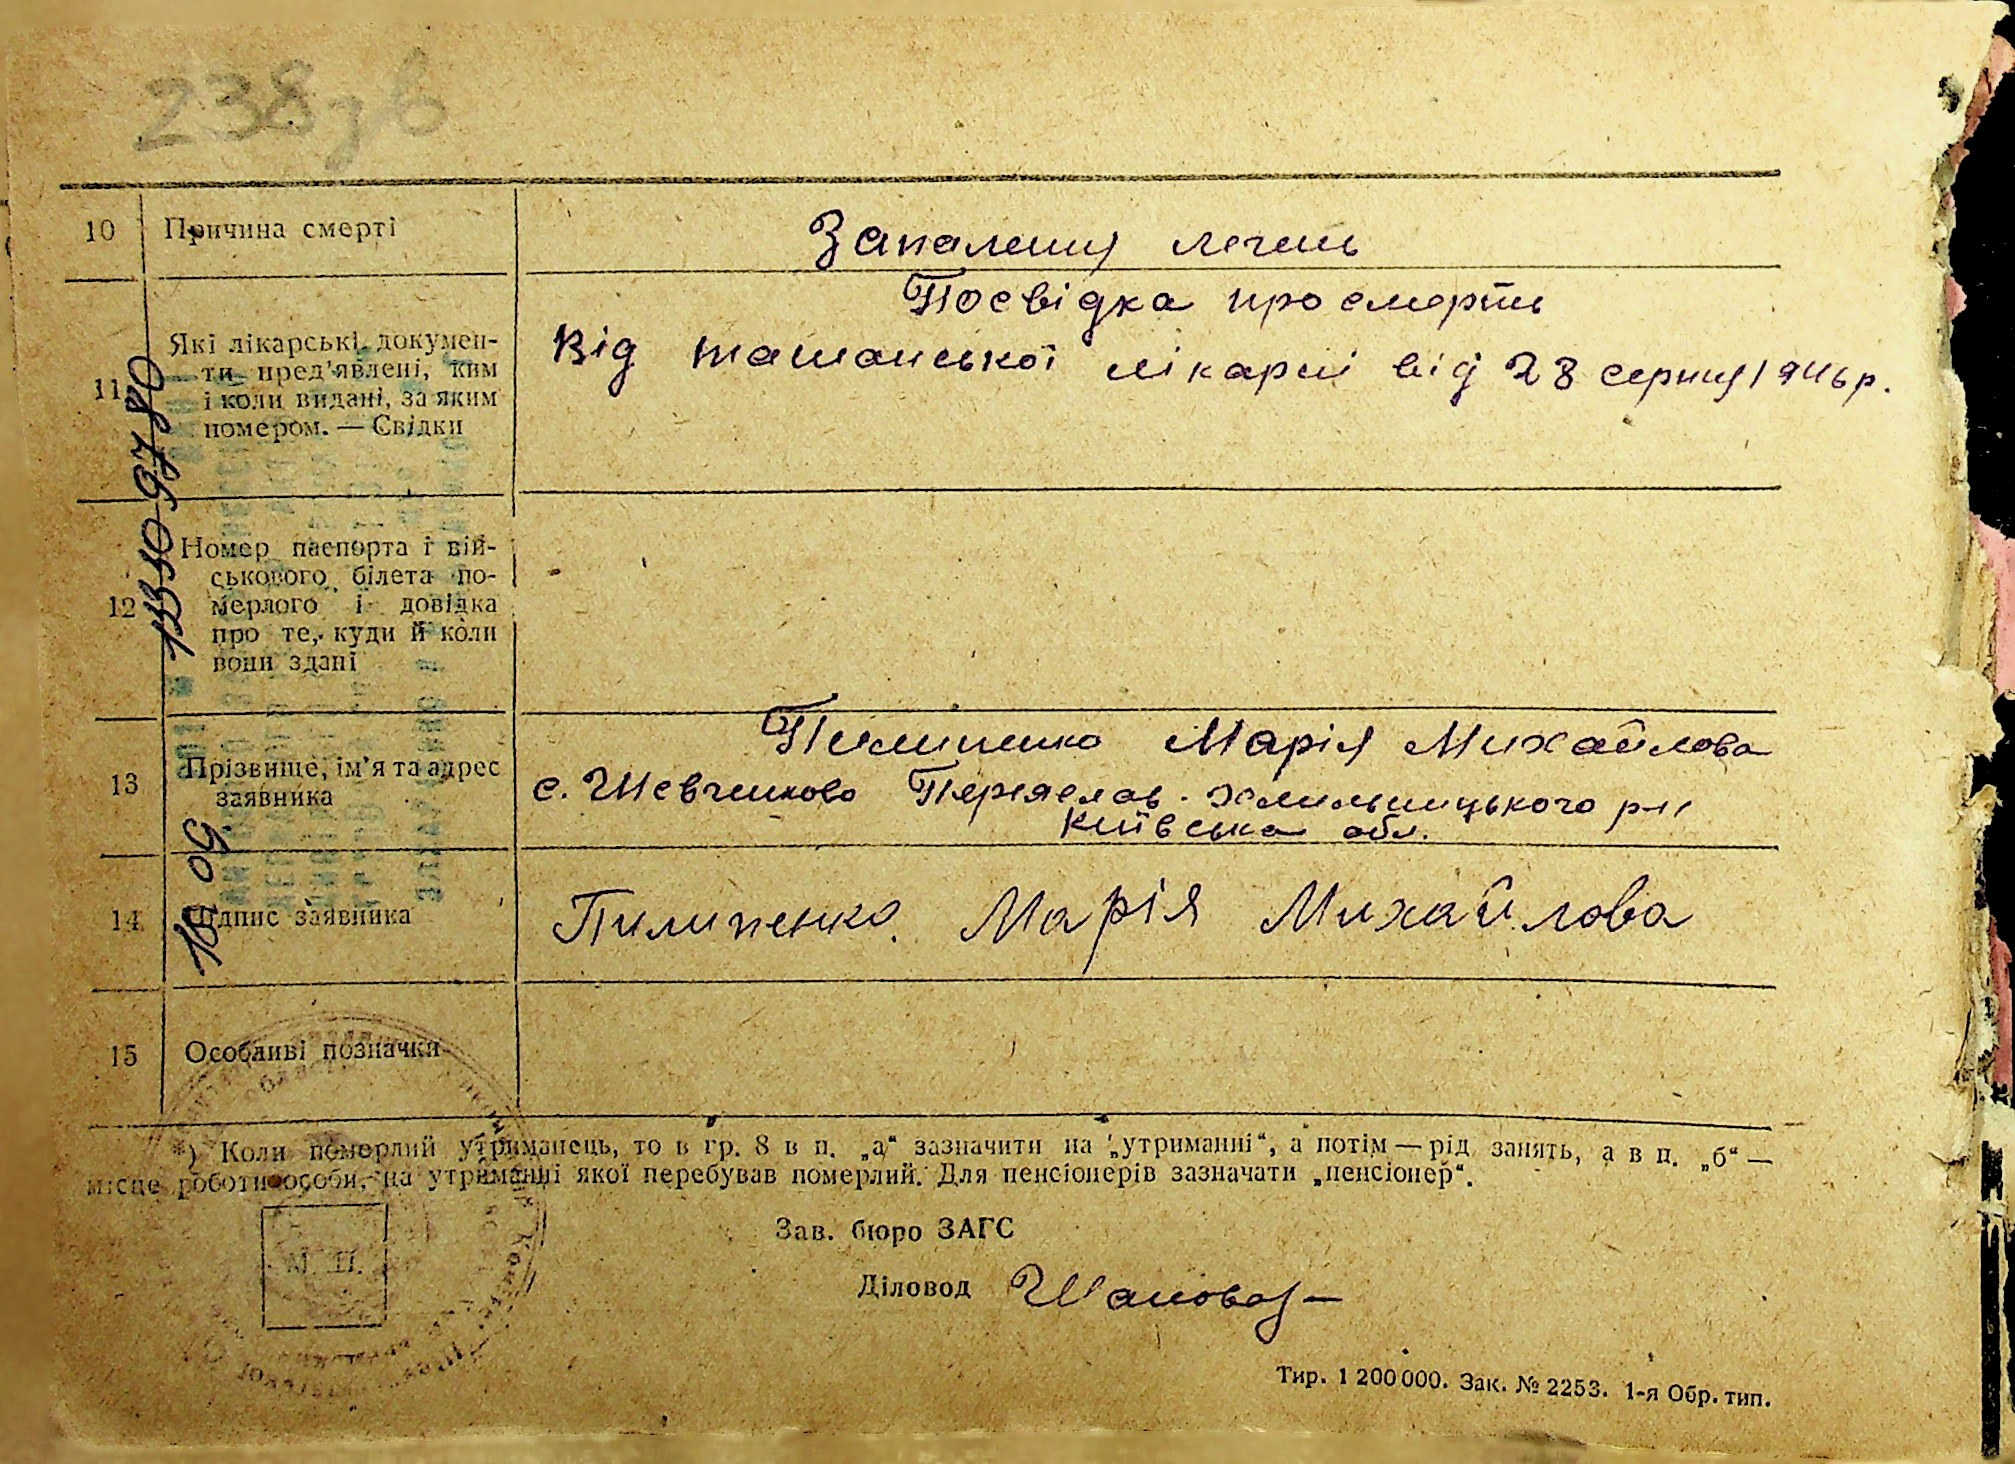 238 зв
10 Причина смерті
Запалення легень
11 Які лікарські докумен-
ти пред'явлені, ким
і коли видані, за яким
номером. — Свідки
Посвідка про смерть
Від ташанської лікарні від 28 серпня 1946 р.
12 Номер паспорта і вій-
ськового білета по-
мерлого і довідка
про те, куди й коли
вони здані
13 Прізвище, ім'я та адрес
заявника
Пилипенко Марія Михайлова
с. Шевченково Переяслав-Хмильницького р-н
Київська обл.
14 Підпис заявника
Пилипенко Марія Михайлова
15 Особливі позначки
*) Коли померлий утриманець, то в гр. 8 в п. „а“ зазначити на „утриманні“, а потім — рід занять, а в п. „б“ —
місце роботи особи, на утриманні якої перебував померлий. Для пенсіонерів зазначати „пенсіонер“.
Зав. бюро ЗАГС
Діловод
М. П.
Тир. 1 200 000. Зак. № 2253. 1-я Обр. тип.